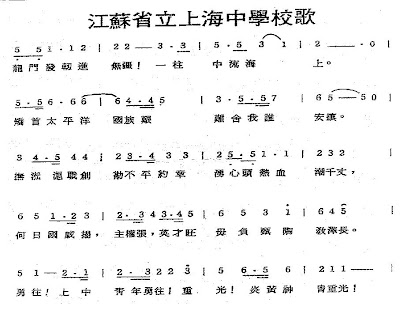 江蘇省立上海中學校歌
5 5 1·1 2 | 2 2 — 3·3 | 5·5 3 1 | 2 — ·0
龍門發軔進 無疆！一柱 中流海 上。
5·5 6·6 6 | 6 4·4 5 | 3·5·5 7 | 6 5 — 5 0
首太平洋 國族艱 難舍我誰 安
3 4·5 4 4 | 2·3·4 3 3 | 2 5·5 1·1 | 2 3 2 |
撫淞滬戰創 勘不平約章 湧心頭熱血 潮千丈，
6 5 1·2 3 | 2·3 3·4·5 | 6 5 3 1 | 6 4 5 |
何日國威揚，主權張，英才旺 毋負甄陶 教澤長。
5 1 — 2·1 | 2·3 2 2 3 | 5 1·2 3 | 5 5 1 —
勇往！上中 青年勇往！重 光！炎黃神 冑重光！